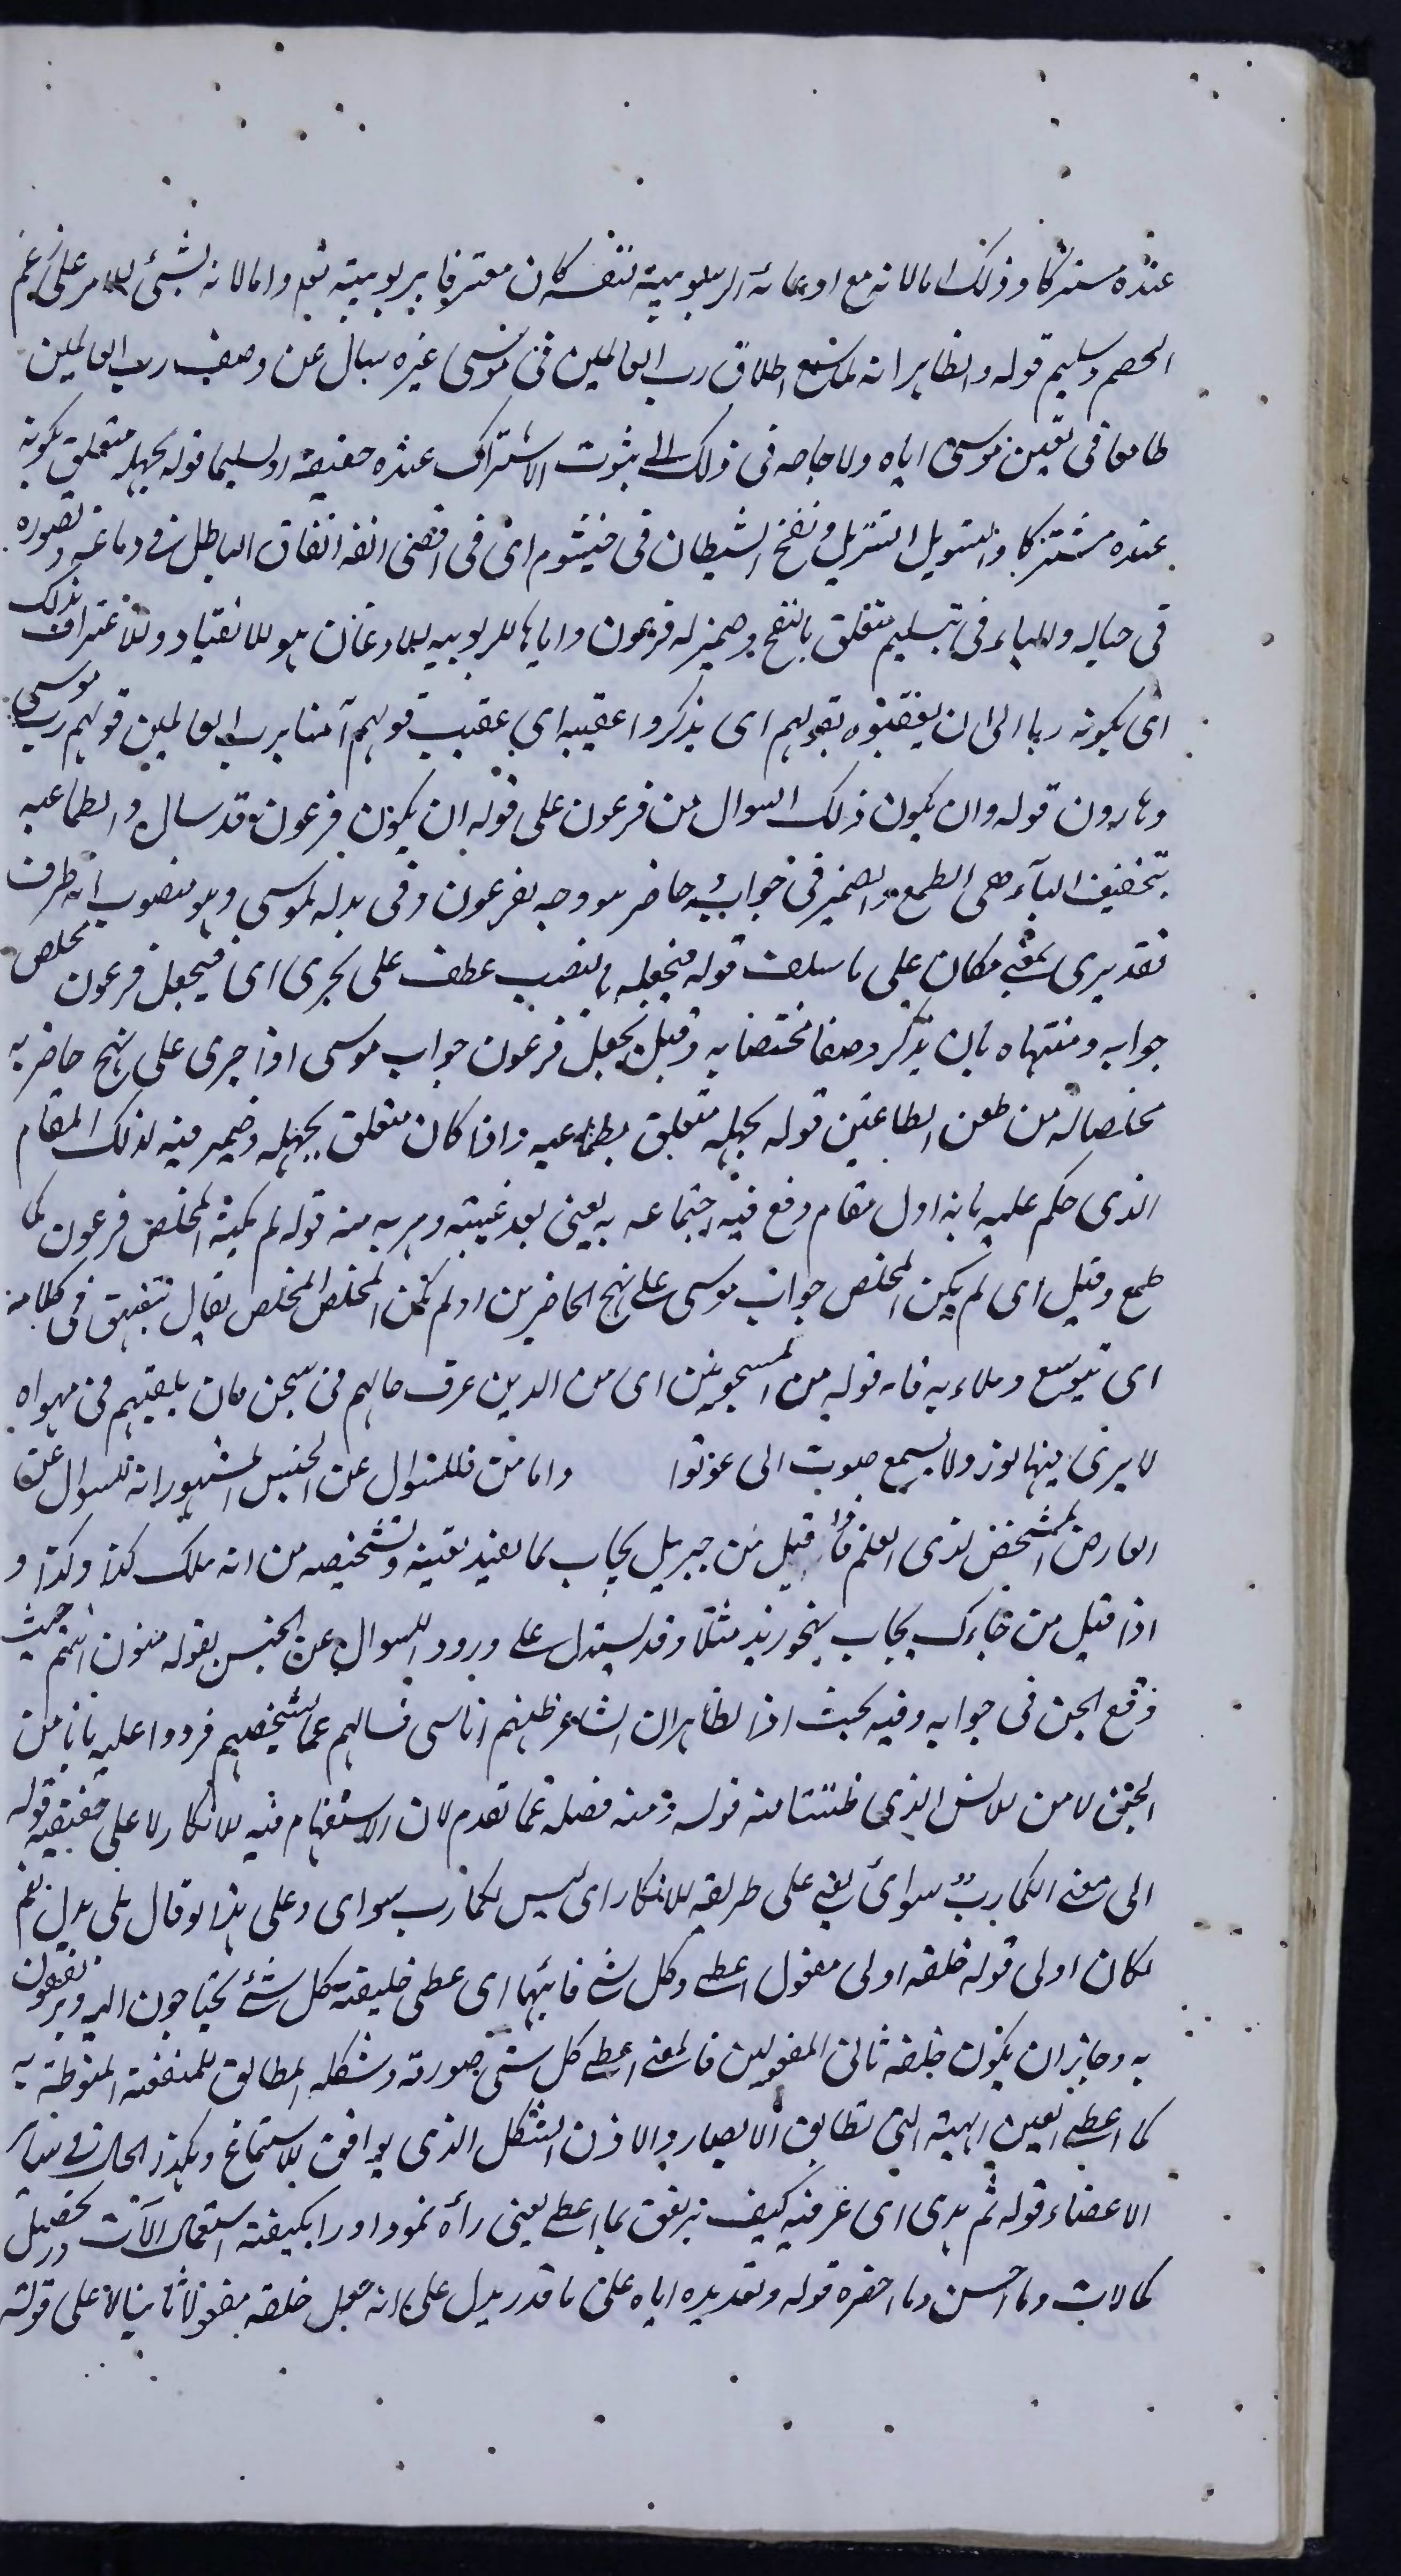 عنده مشتركا وذلك اما لانه مع ادعائه الربوبية لنفسه كان معترفا بربوبيته تعم واما لانه بشئ للامر على زعم
الخصم وتسليم قوله والظاهر انه لما سمع اطلاق رب العالمين فى موسى غيره سال عن وصف رب العالمين
طامعا فى تعين موسى اياه ولا حاجة فى ذلك الى ثبوت الاشتراك عنده حقيقة او تسليما قوله لجهله متعلق بكونه
عنده مشتركا والتسويل التزيل ونفخ الشيطان فى خيشوم اى فى اقصى انفه اتفاق الباطل فى دماغه وتصوره
فى خياله والباء فى بتسليم متعلق بالنفخ وضمير له فرعون واياها للربوبيه والاذعان هو الانقياد والاعتراف بذلك
اى بكونه ربا الى ان يعقبوه بقولهم اى يذكروا عقيبه اى عقيب قولهم آمنا برب العالمين قولهم رب موسى
وهارون قوله وان يكون ذلك السوال من فرعون على قوله ان يكون فرعون قد سال والطماعيه
بتخفيف الياء هى الطمع والضمير فى جوابه حاضر موجه بفرعون وفى بدله لموسى وهو منصوب انه ظرف
تقديرى بمعنى مكان على ما سلف قوله فيجعله بالنصب عطف على يجرى اى فيجعل فرعون مخلص
جوابه ومنتهاه بان يذكر وصفا مختصا به وقيل يجعل فرعون جواب موسى اذا جرى على نهج حاضريه
مخلصا له من طعن الطاعنين قوله لجهله متعلق بطماعيه واذا كان متعلق بجهله وضمير فيه لذلك المقام
الذى حكم عليه بانه اول مقام وقع فيه اجتماعه به يعنى بعد غيبته وهربه منه قوله لم يكنه المخلص فرعون كما
طمع وقيل اى لم يكن المخلص جواب موسى على نهج الحاضرين او لم يكن المخلص المخلص يقال تفيهق فى كلامه
اى توسع وملاء به فاه قوله من المسجونين اى من الذين عرف حالهم فى سجن كان يلقيهم فى مهواه
لا يرى فيها نور ولا يسمع صوت الى عوتوا واما من فللسوال عن الجنس المشهور انه للسوال عن
العارض المشخص لذى العلم فاذا قيل من جبريل يجاب بما يفيد تعينه وتشخيصه من انه ملك كذا وكذا و
اذا قيل من جاءك يجاب بنحو زيد مثلا وقد يستدل على ورود السوال عن الجنس بقوله منون انتم حيث
وقع الجن فى جوابه وفيه بحث اذ الظاهر ان الشاعر ظنهم اناسى فسالهم عما يشخصهم فردوا عليه بانا من
الجن لا من الانس الذى ظننتنا منه قوله ومنه فصله عما تقدم لان الاستفهام فيه للانكار لا على حقيقته قوله
الى معنى الكما ربّ سوائ يعنى على طريقه الانكار اى ليس لكما رب سواى وعلى هذا لو قال بلى بدل نعم
لكان اولى قوله خلقه اولى مفعول اعطى وكل شى ثانيهما اى عطى خليقته كل شئ يحتاجون اليه ويرتفقون
به وجايز ان يكون خلقه ثانى المفعولين فالمعنى اعطى كل شى صورته وشكله المطابق للمنفعة المنوطة به
كما اعطى العين الهيئة التى تطابق الابصار والاذن الشكل الذى يوافق الاستماع وهكذا الحال فى سائر
الاعضاء قوله ثم هدى اى عرفه كيف يرتفق بما اعطى يعنى رأه نمود اورا بكيفيته استعمال الآت در تحصيل
كمالات وما احسن وما احقره قوله وتقديره اياه على ما قدر يدل على انه جعل خلقه مفعولا ثانيا لا على قوله